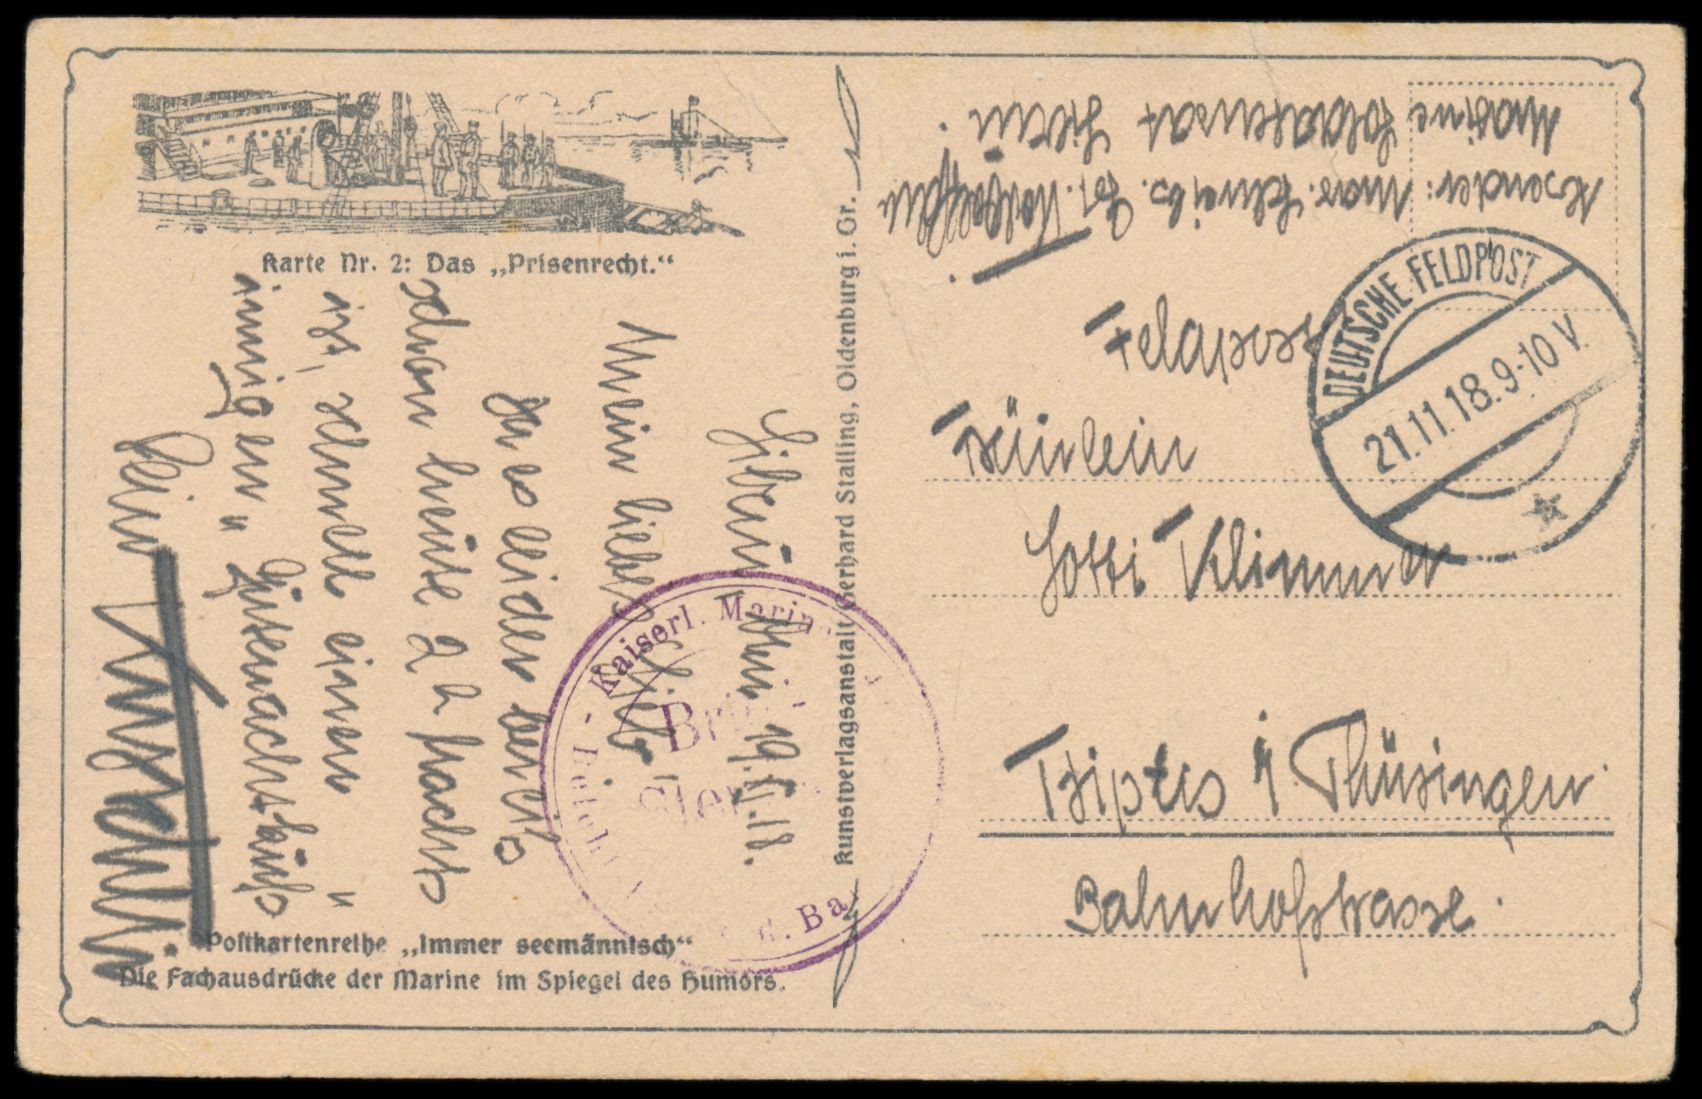 Karte Nr. 2: Das „Prisenrecht.“
Libau, den 19.11.18.
Mein liebes Lotto!
Da es leider bereits
schon heute 2 h nachts
ist, schnell einen
innigen „Gutenachtkuß“
Dein
Postkartenreihe „Immer seemännisch“
Die Fachausdrücke der Marine im Spiegel des Humors.
Kunstverlagsanstalt Gerhard Stalling, Oldenburg i. Gr.
Kaiserl. Marine
Brief
Ba
Absender: Mar. Schreib. Gst.
Marine Soldatenrat Libau.
Feldpost
DEUTSCHE FELDPOST
21.11.18.9-10 V.
Fräulein
Lotti Klimmer
Triptis i Thüringen.
Bahnhofstrasse.